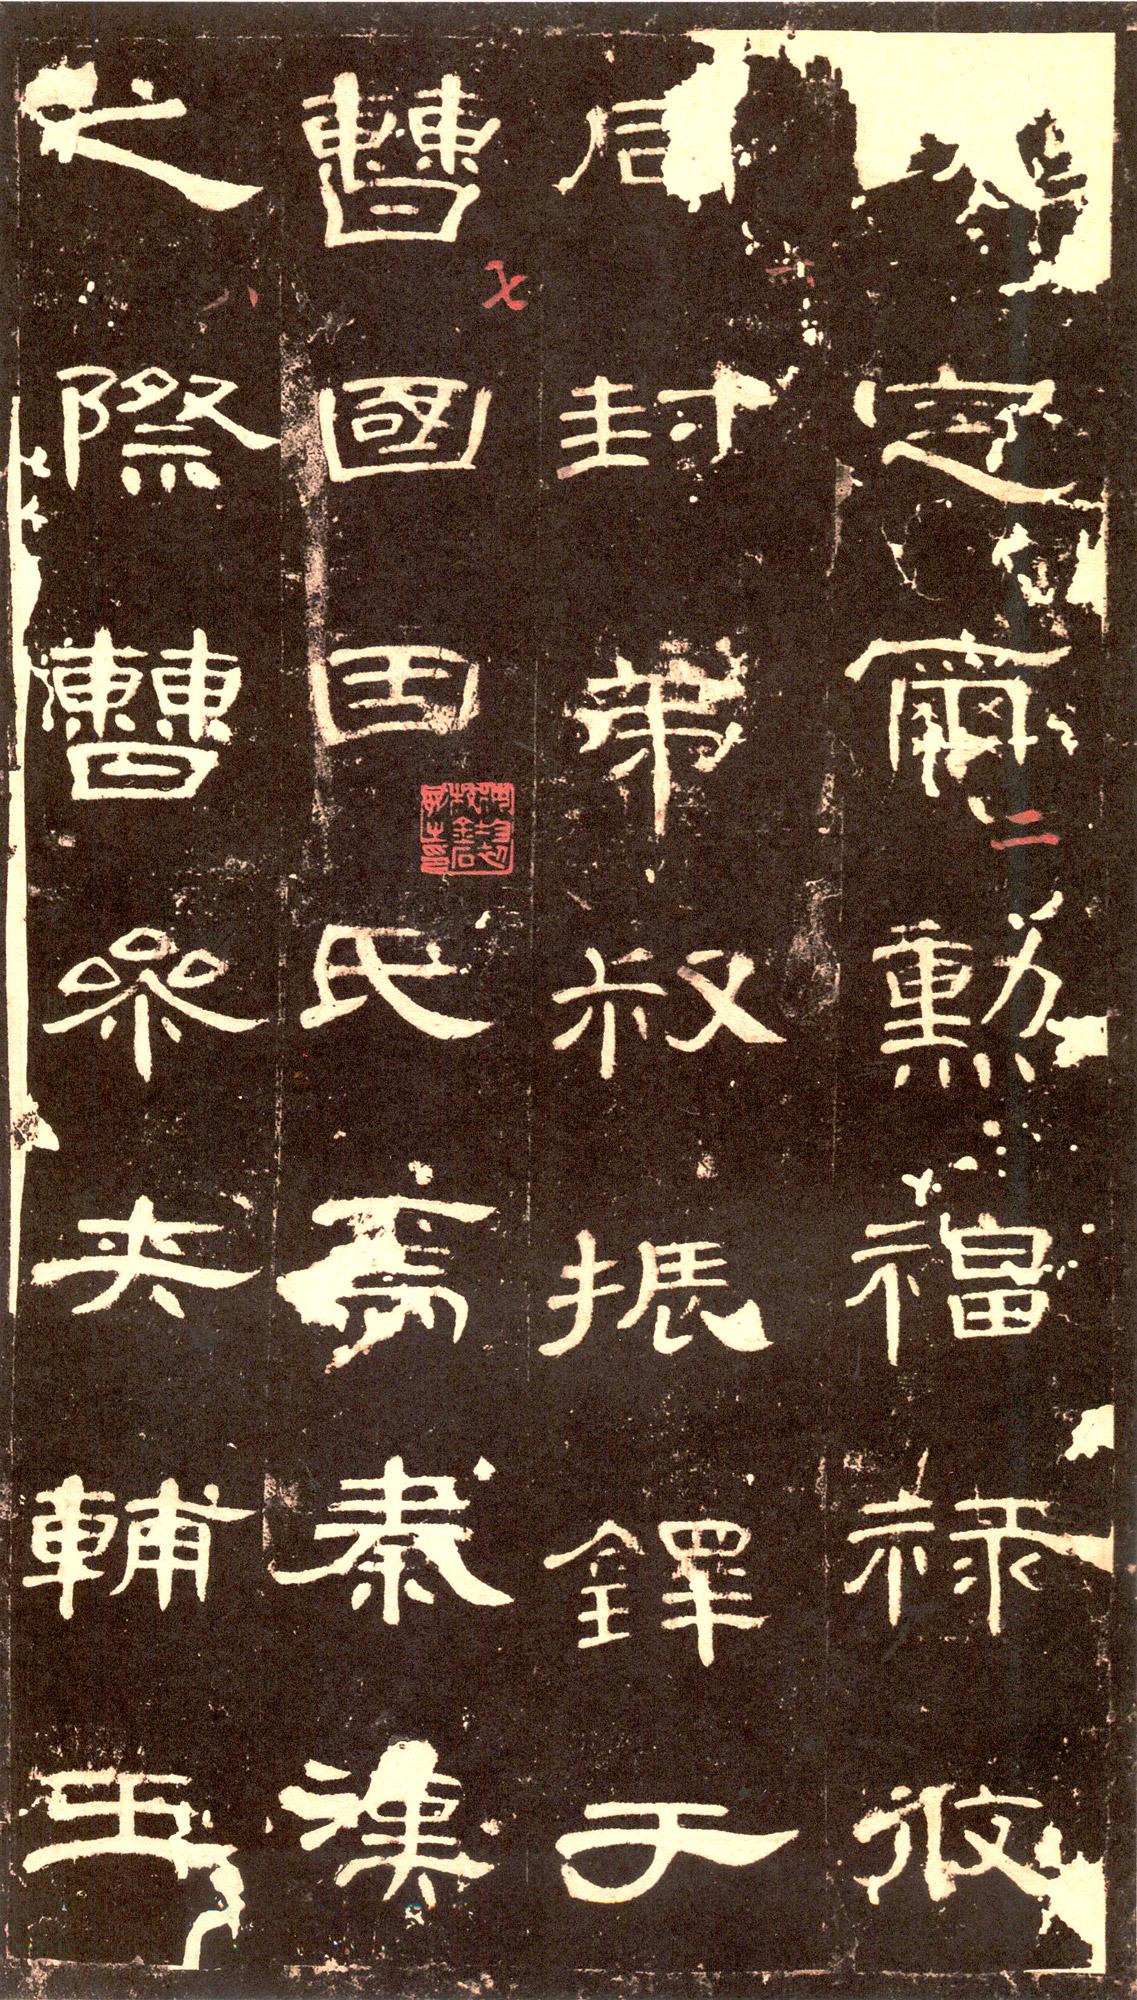 定爾勳福祿攸
同封弟叔振鐸于
曹國因氏焉秦漢
之際曹參夾輔王